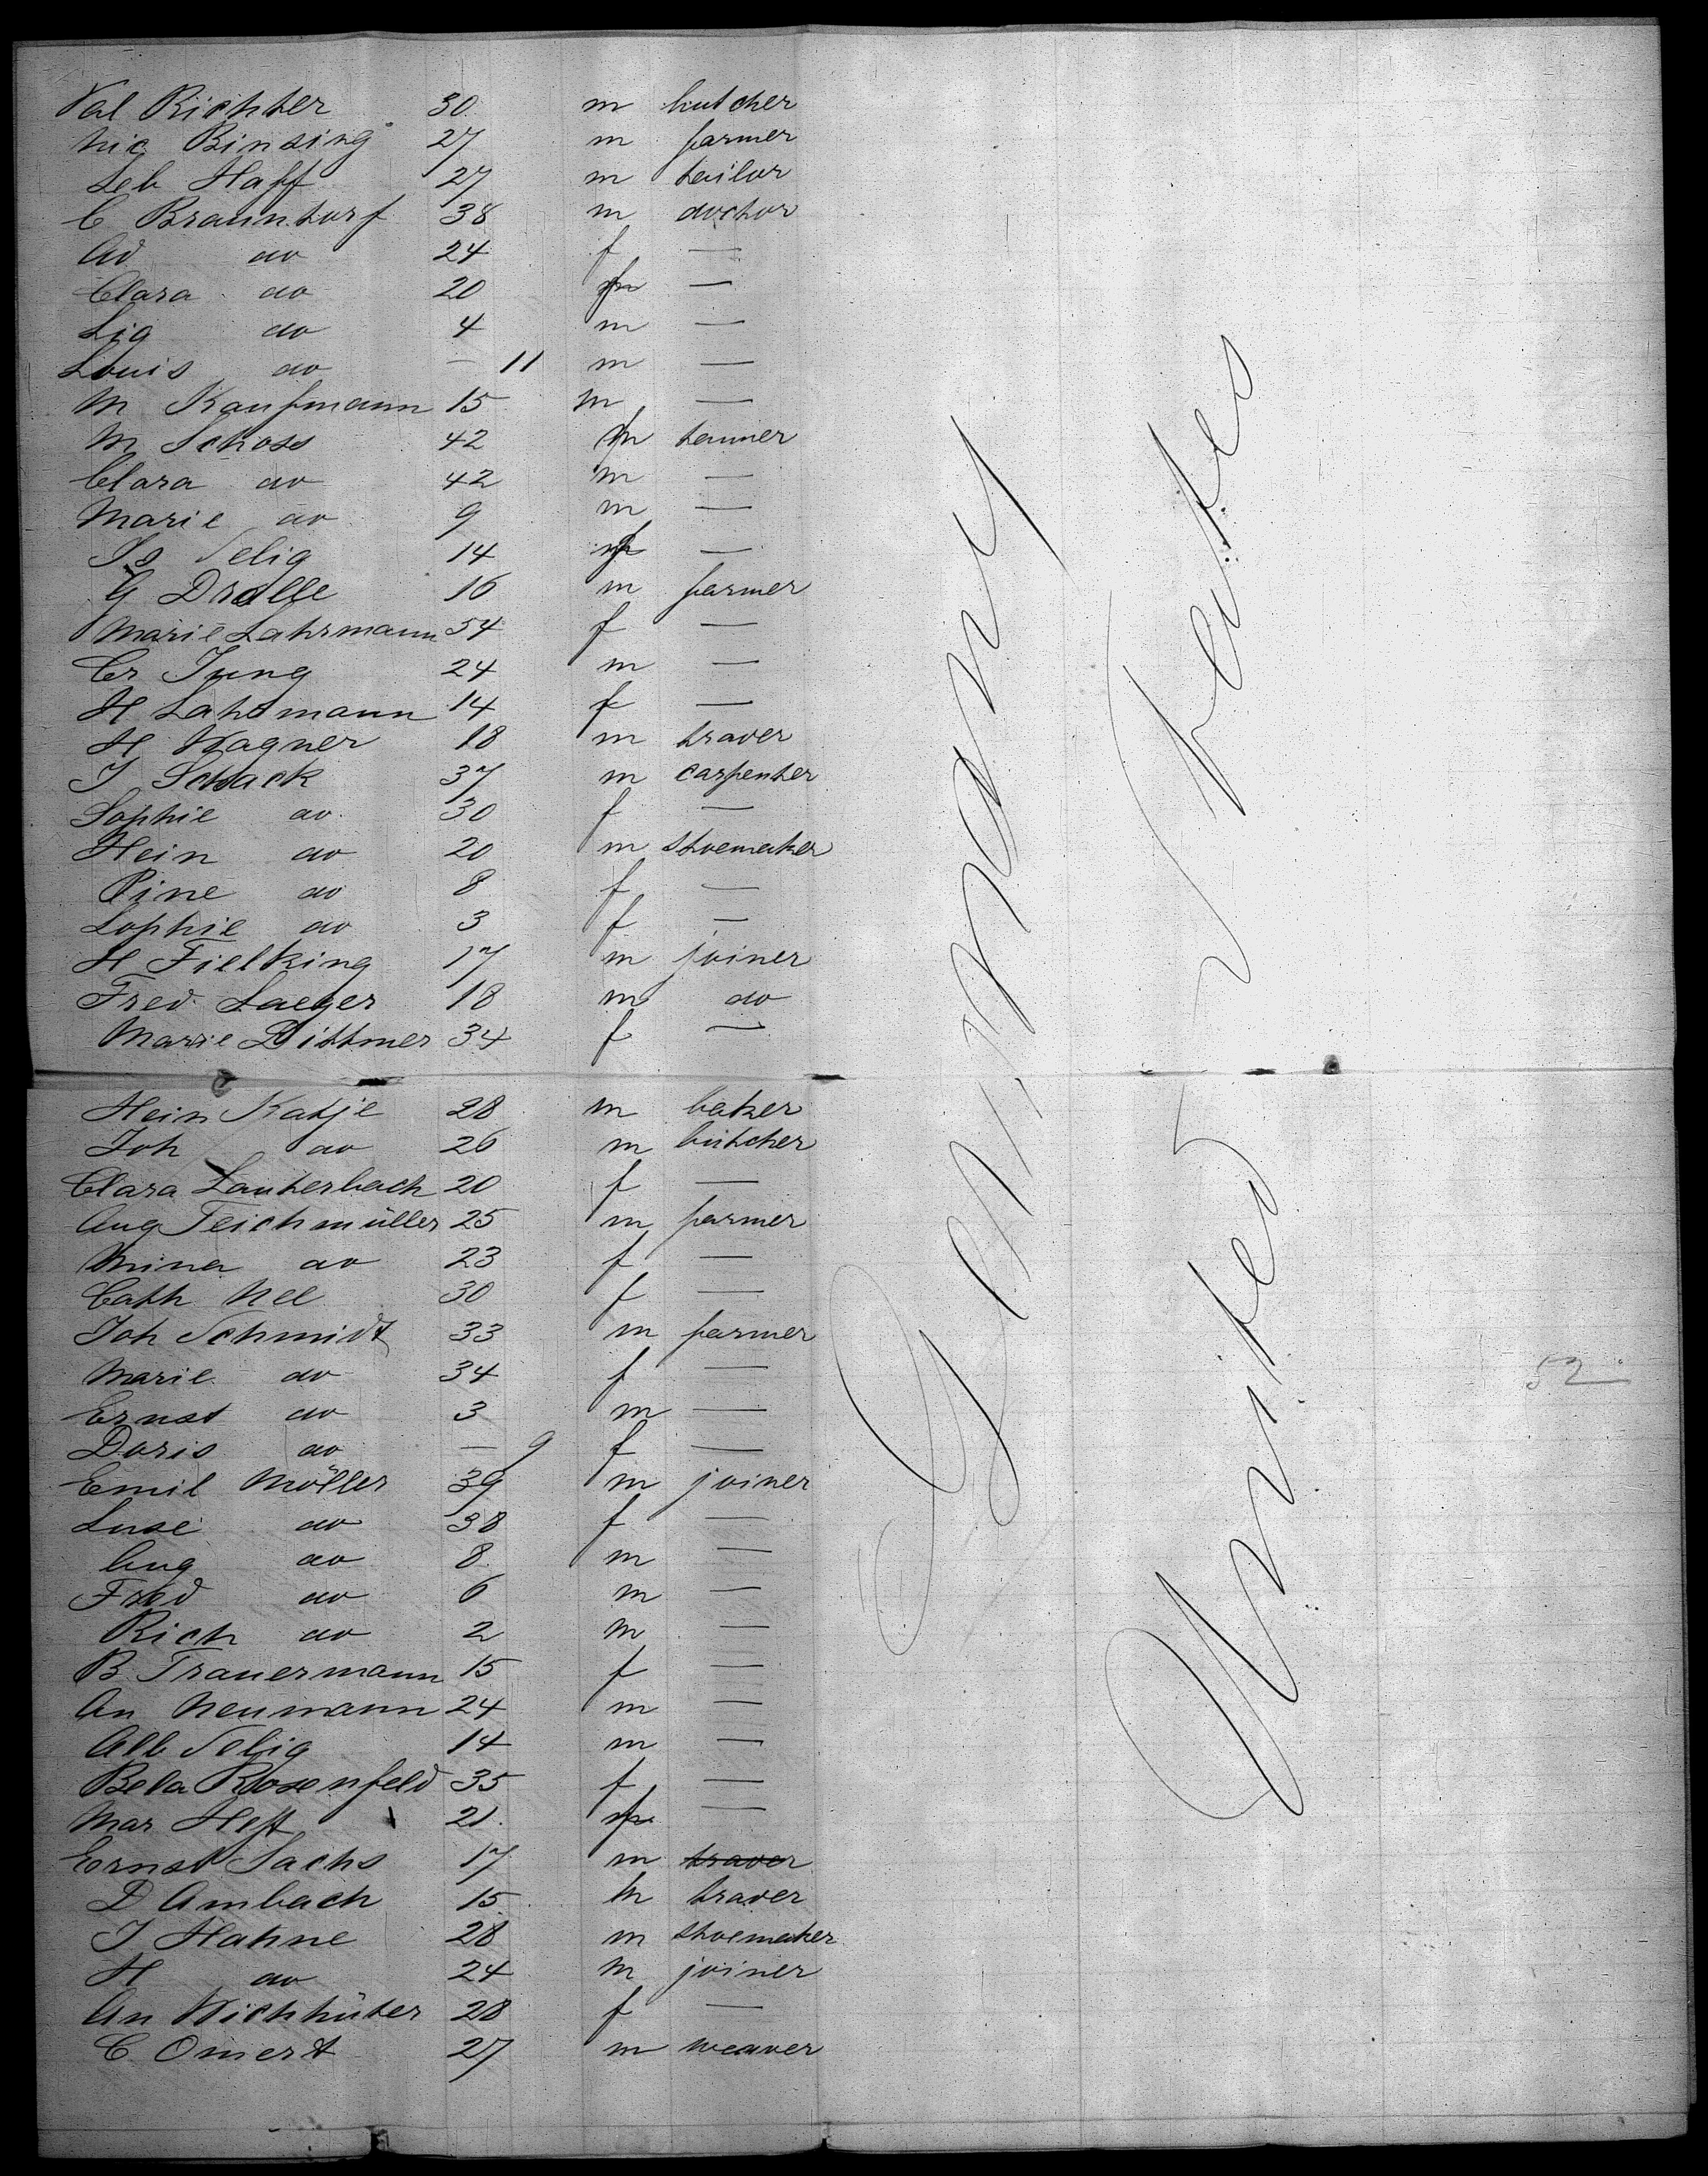 Val Richter 30 m butcher
Nic Binsing 27 m farmer
Seb Haff 27 m tailor
C Brauntorf 38 m doctor
Ad do 24 f —
Clara do 20 f —
Sig do 4 m —
Louis do — 11 m —
M Kaufmann 15 m —
M Schoss 42 m tanner
Clara do 42 m —
Marie do 9 m —
Is Selig 14 —
G Dralle 16 m farmer
Marie Lahrmann 54 f —
Cr Jung 24 m —
H Lahrmann 14 f —
H Wagner 18 m traver
J Schack 37 m carpenter
Sophie do 30 f —
Hein do 20 m shoemaker
Pine do 8 f —
Sophie do 3 f —
H Fielking 17 m joiner
Fred Saeger 18 m do
Marie Dittmer 34 f —
Hein Katje 28 m baker
Joh do 26 m butcher
Clara Lauterbach 20 f —
Aug Teichmüller 25 m farmer
Mina do 23 f —
Cath Nee 30 f —
Joh Schmidt 33 m farmer
Marie do 34 f —
Ernst do 3 m —
Doris do — 9 f —
Emil Möller 39 m joiner
Luse do 38 f —
Aug do 8 m —
Fred do 6 m —
Rich do 2 m —
B Trauermann 15 f —
An Neumann 24 m —
Alb Selig 14 m —
Bela Rosenfeld 35 f —
Mar Heft 21 —
Ernst Sachs 17 m traver
D Ambach 15 m traver
J Hahne 28 m shoemaker
H do 24 m joiner
An Wichhüter 28 f —
C Omert 27 m weaver
Germany
United States
52